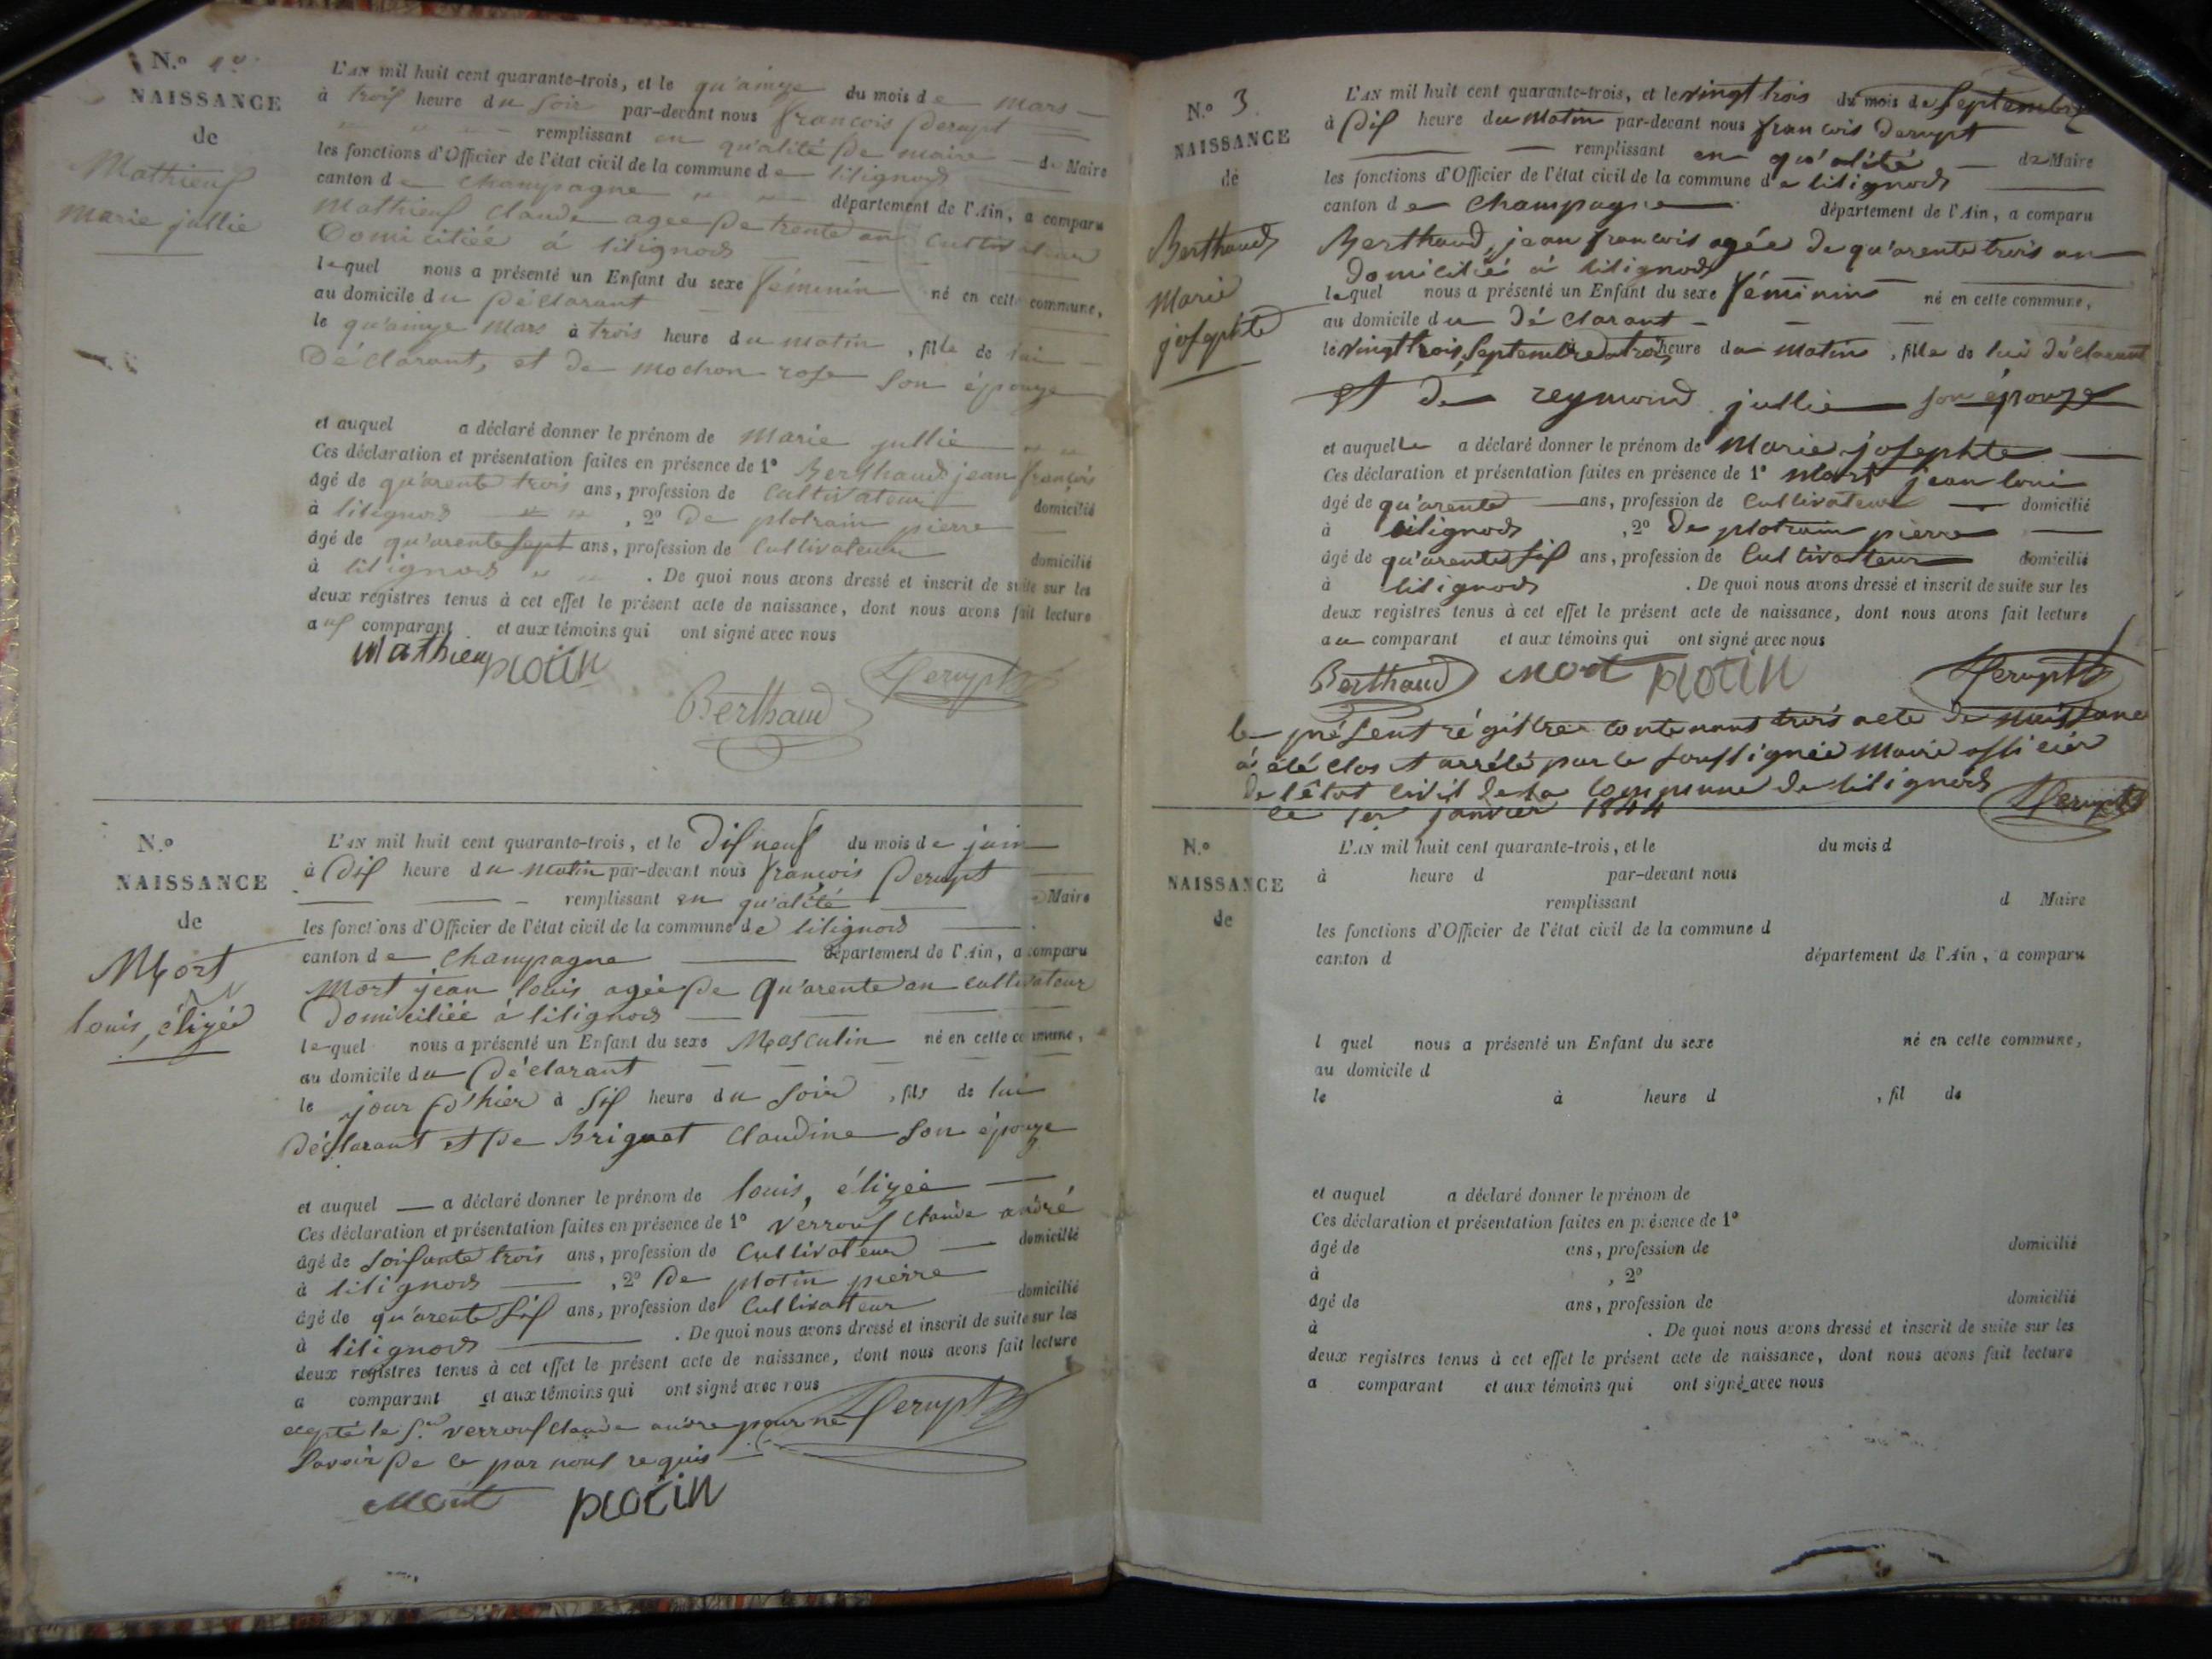 N.o 1er
NAISSANCE
de
Mathieux
Marie jullie
L'AN mil huit cent quarante-trois, et le qu'ainze du mois de mars
à trois heure du soir par-devant nous françois Derupt
remplissant en qu'alité de maire de Maire
les fonctions d'Officier de l'état civil de la commune de lilignod
canton de Champagne département de l'Ain, a comparu
Mathieux Claude agée de trente an cultivateur
Domiciliée à lilignod
lequel nous a présenté un Enfant du sexe féminin né en cette commune,
au domicile du Déclarant
le qu'ainze Mars à trois heure du matin, fille de lui
Déclarant, et de mochon rose son épouze
et auquel a déclaré donner le prénom de Marie jullie
Ces déclaration et présentation faites en présence de 1° Berthaud jean françois
âgé de qu'arente trois ans, profession de Cultivateur domicilié
à lilignod , 2° De plotrain pierre
âgé de qu'arente sept ans, profession de Cultivateur domicilié
à lilignod . De quoi nous avons dressé et inscrit de suite sur les
deux registres tenus à cet effet le présent acte de naissance, dont nous avons fait lecture
aux comparant et aux témoins qui ont signé avec nous
Mathieu plotin
Berthaud Derupt
N.o
NAISSANCE
de
Mort
louis, élizée
L'AN mil huit cent quarante-trois, et le Dix neuf du mois de juin
à Dix heure du matin par-devant nous françois Derupt
remplissant en qu'alité Maire
les fonctions d'Officier de l'état civil de la commune de lilignod
canton de Champagne département de l'Ain, a comparu
Mort jean louis agée de Qu'arente an cultivateur
Domiciliée à lilignod
lequel nous a présenté un Enfant du sexe Masculin né en cette commune,
au domicile du Déclarant
le jour d'hier à six heure du soir, fils de lui
Déclarant et de Briguet Claudine son épouze
et auquel a déclaré donner le prénom de louis, élizée
Ces déclaration et présentation faites en présence de 1° Verroux Claude andré
âgé de soixante trois ans, profession de Cultivateur domicilié
à lilignod , 2° De plotin pierre
âgé de qu'arente six ans, profession de Cultivateur domicilié
à lilignod . De quoi nous avons dressé et inscrit de suite sur les
deux registres tenus à cet effet le présent acte de naissance, dont nous avons fait lecture
a comparant et aux témoins qui ont signé avec nous
exepté le Sr Verroux Claude andre pour ne Derupt
Savoir De ce par nous requis
Mort plotin
N.o 3
NAISSANCE
de
Berthaud
Marie
josephte
L'AN mil huit cent quarante-trois, et le vingt trois du mois de Septembre
à Dix heure du Matin par-devant nous françois Derupt
remplissant en qu'alité de Maire
les fonctions d'Officier de l'état civil de la commune de lilignod
canton de Champagne département de l'Ain, a comparu
Berthaud, jean françois agée de qu'arente trois an
Domicilié à lilignod
lequel nous a présenté un Enfant du sexe féminin né en cette commune,
au domicile du Déclarant
le vingt trois Septembre à trois heure du Matin, fille de lui déclarant
et de reymond jullie son épouze
et auquelle a déclaré donner le prénom de Marie josephte
Ces déclaration et présentation faites en présence de 1° Mort jean loui
âgé de qu'arente ans, profession de Cultivateur domicilié
à lilignod , 2° De plotrain pierre
âgé de qu'arente six ans, profession de Cultivateur domicilié
à lilignod . De quoi nous avons dressé et inscrit de suite sur les
deux registres tenus à cet effet le présent acte de naissance, dont nous avons fait lecture
au comparant et aux témoins qui ont signé avec nous
Berthaud Mort plotin Derupt
le présent régistre contenant trois acte de naissance
à été Clos et arrété par le soussignée Maire officier
De l'état civil de la commune de lilignod Derupt
le 1er janvier 1844
N.o
NAISSANCE
de
L'AN mil huit cent quarante-trois, et le du mois d
à heure d par-devant nous
remplissant d Maire
les fonctions d'Officier de l'état civil de la commune d
canton d département de l'Ain, a comparu
l quel nous a présenté un Enfant du sexe né en cette commune,
au domicile d
le à heure d , fil de
et auquel a déclaré donner le prénom de
Ces déclaration et présentation faites en présence de 1°
âgé de ans, profession de domicilié
à , 2°
âgé de ans, profession de domicilié
à . De quoi nous avons dressé et inscrit de suite sur les
deux registres tenus à cet effet le présent acte de naissance, dont nous avons fait lecture
a comparant et aux témoins qui ont signé avec nous